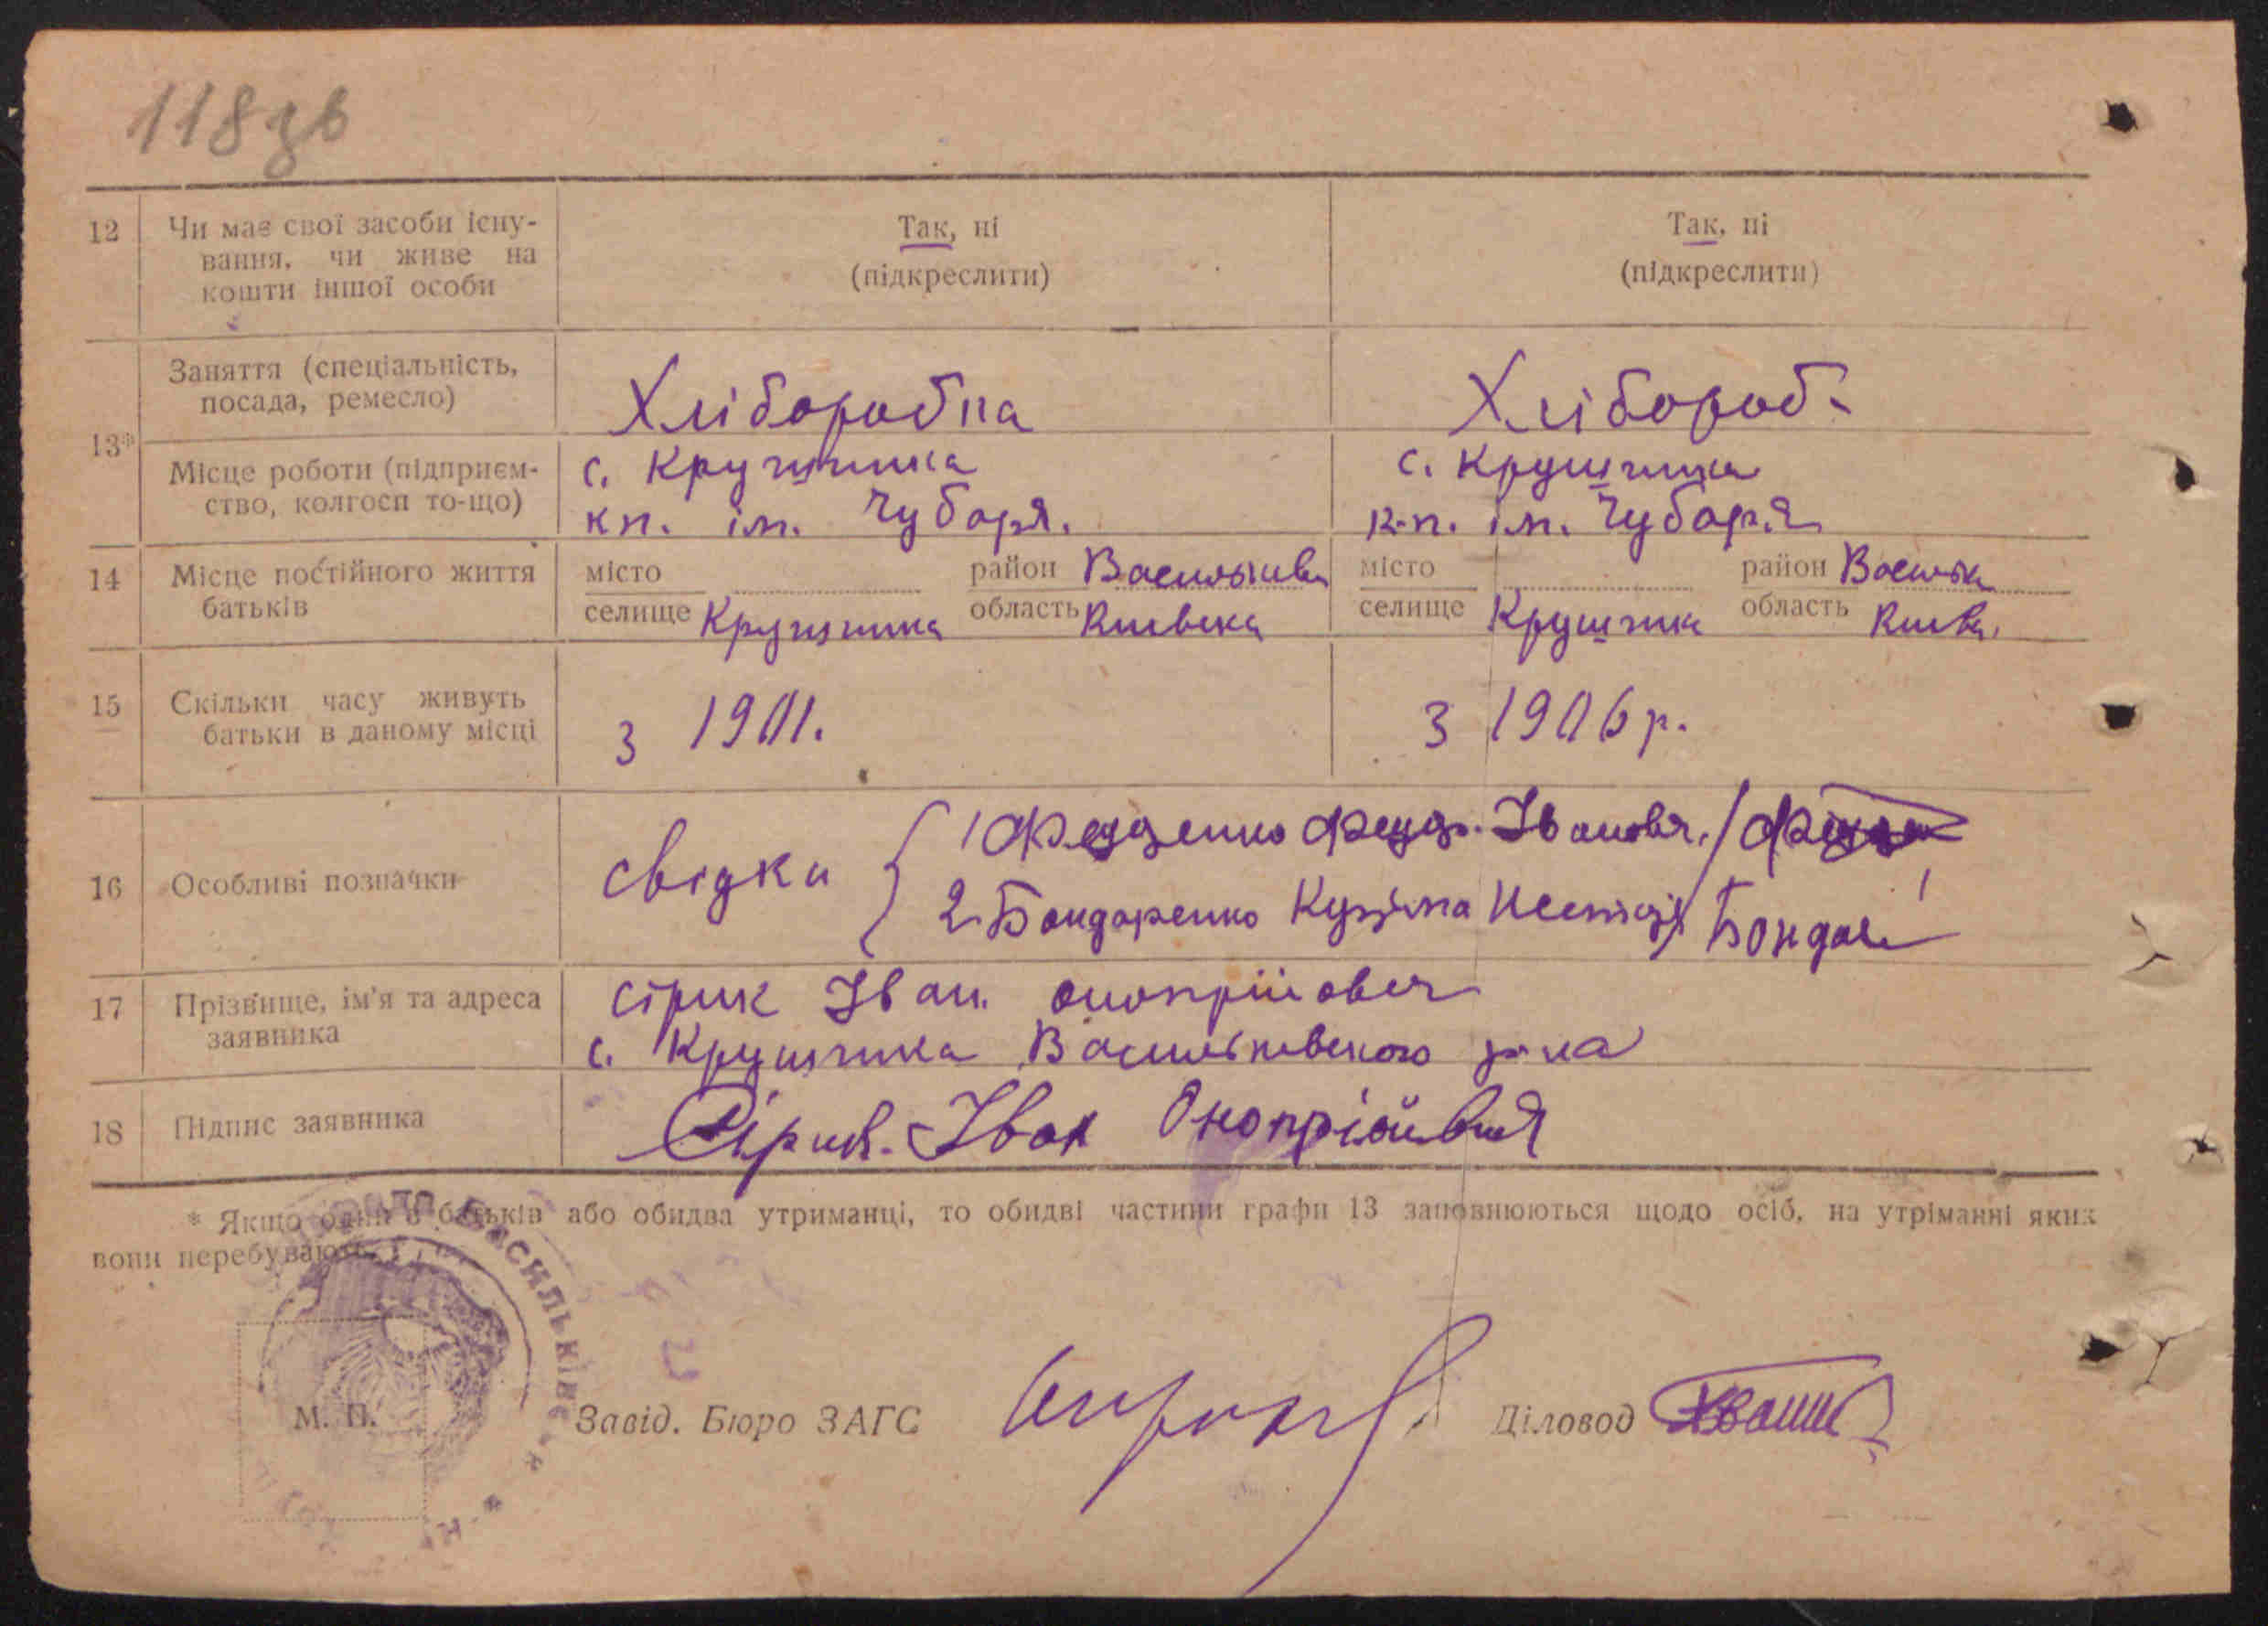 118зв
12 Чи має свої засоби існу- Так, ні Так, ні
вання, чи живе на (підкреслити) (підкреслити)
кошти іншої особи
Заняття (спеціальність,
посада, ремесло) Хліборобка Хлібороб.
13*
Місце роботи (підприєм- с. Крушинка с. Крушинка
ство, колгосп то-що) кп. ім. Чубаря. к-п. ім. Чубаря
14 Місце постійного життя місто район Васильків місто район Васильк
батьків селище Крушинка область Київска селище Крушинка область Київ.
15 Скільки часу живуть
батьки в даному місці з 1901. з 1906 р.
16 Особливі позначки свідки
1 Федченко Федр. Іванович.
2 Бондаренко Кузьма Бондар
17 Прізвище, ім'я та адреса сірик Іван. онопрійович
заявника с. Крушинка Васильковського р-на
18 Підпис заявника Сірик. Іван Онопрійович
* Якщо один з батьків або обидва утриманці, то обидві частини графи 13 заповнюються щодо осіб, на утріманні яких
вони перебувають.
Васильків
М. П. Завід. Бюро ЗАГС Діловод